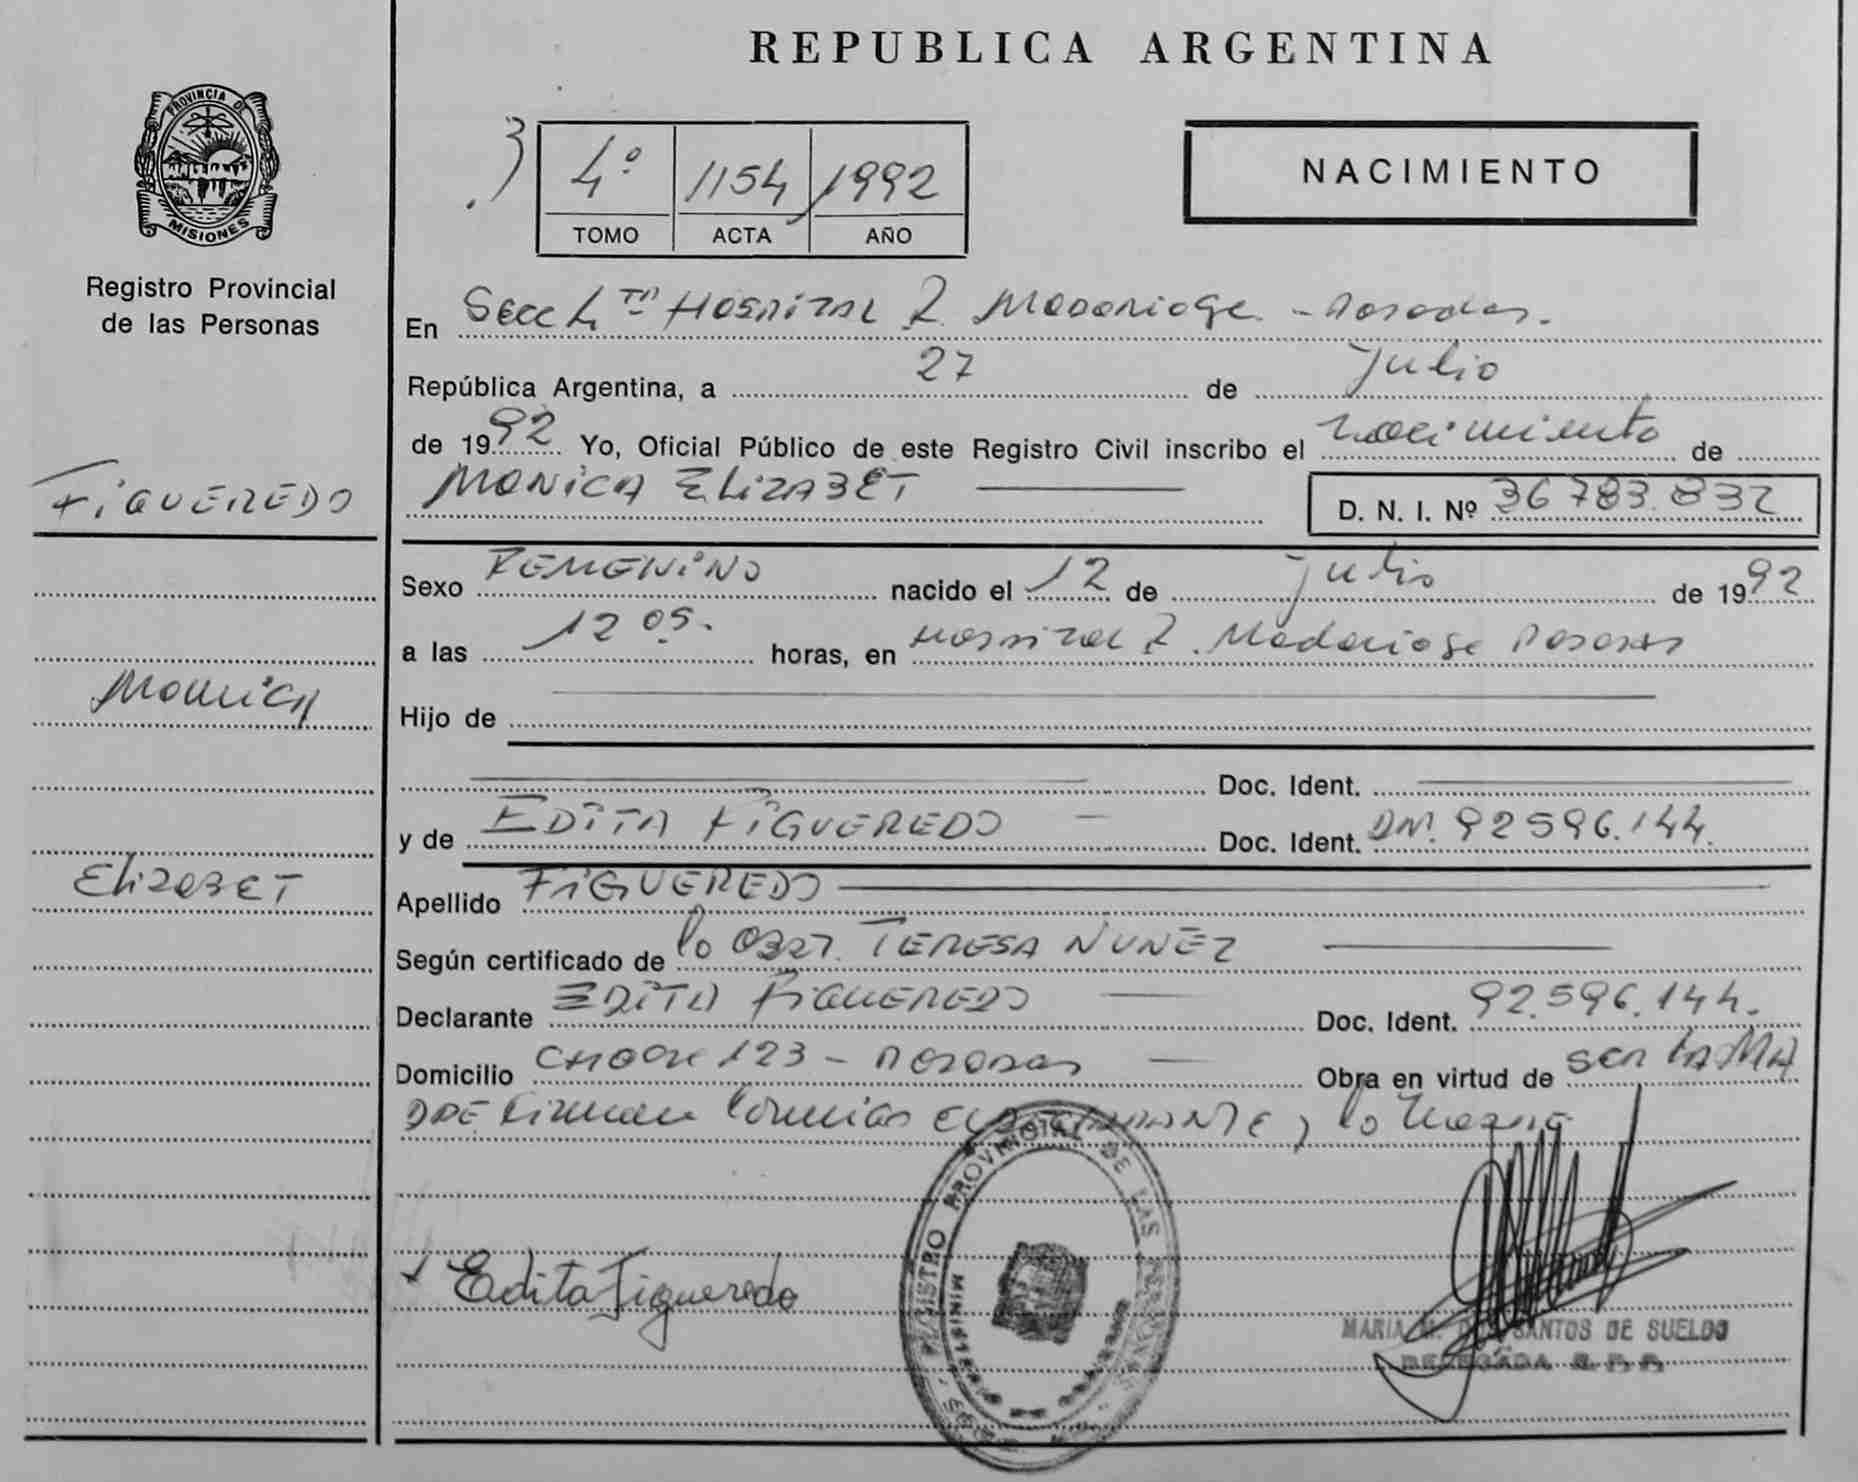 REPUBLICA ARGENTINA
PROVINCIA DE
MISIONES
Registro Provincial
de las Personas
4º 1154 1992
TOMO ACTA AÑO
NACIMIENTO
En Secc 4ta HOSPITAL R. Madariaga - Posadas.
República Argentina, a 27 de Julio
de 1992 Yo, Oficial Público de este Registro Civil inscribo el nacimiento de
MONICA ELIZABET
D. N. I. Nº 36 783.832
FIGUEREDO
Monica
Elizabet
Sexo FEMENINO nacido el 12 de julio de 1992
a las 12 05. horas, en Hospital R. Madariaga Posadas
Hijo de
Doc. Ident.
y de EDITA FIGUEREDO Doc. Ident. DNI. 92596.144.
Apellido FIGUEREDO
Según certificado de la Obst. TERESA NUÑEZ
Declarante EDITA FIGUEREDO Doc. Ident. 92.596.144.
Domicilio 123 - Posadas Obra en virtud de ser LA MA
DRE Firman conmigo el declarante y la
Edita Figueredo
REGISTRO PROVINCIAL DE LAS PERSONAS
MARIA M. DOS SANTOS DE SUELDO
DELEGADA